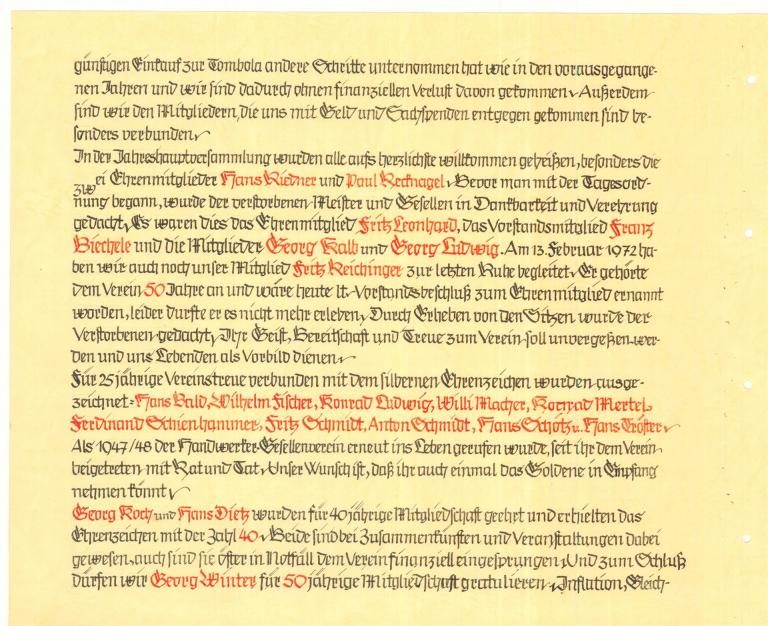 günstigen Einkauf zur Tombola andere Schritte unternommen hat wie in den vorausgegange-
nen Jahren und wir sind dadurch ohnen finanziellen Verlust davon gekommen. Außerdem
sind wir den Mitgliedern, die uns mit Geld und Sachspenden entgegen gekommen sind be-
sonders verbunden.
In der Jahreshauptversammlung wurden alle aufs herzlichste willkommen geheißen, besonders die
zwei Ehrenmitglieder Hans Riedner und Paul Recknagel. Bevor man mit der Tagesord-
nung begann, wurde der verstorbenen Meister und Gesellen in Dankbarkeit und Verehrung
gedacht. Es waren dies das Ehrenmitglied Fritz Leonhard, das Vorstandsmitglied Franz
Biechele und die Mitglieder Georg Kalb und Georg Ludwig. Am 13. Februar 1972 ha-
ben wir auch noch unser Mitglied Fritz Reichinger zur letzten Ruhe begleitet. Er gehörte
dem Verein 50 Jahre an und wäre heute lt. Vorstandsbeschluß zum Ehrenmitglied ernannt
worden, leider durfte er es nicht mehr erleben. Durch Erheben von den Sitzen wurde der
Verstorbenen gedacht. Ihr Geist, Bereitschaft und Treue zum Verein soll unvergeßen wer-
den und uns Lebenden als Vorbild dienen.
Für 25 jährige Vereinstreue verbunden mit dem silbernen Ehrenzeichen wurden ausge-
zeichnet: Hans Bald, Wilhelm Fischer, Konrad Ludwig, Willi Macher, Konrad Mertel,
Ferdinand Schienhammer, Fritz Schmidt, Anton Schmidt, Hans Schötz u. Hans Tröster.
Als 1947/48 der Handwerker-Gesellenverein erneut ins Leben gerufen wurde, seit ihr dem Verein
beigetreten mit Rat und Tat. Unser Wunsch ist, daß ihr auch einmal das Goldene in Empfang
nehmen könnt.
Georg Koch und Hans Dietz wurden für 40 jährige Mitgliedschaft geehrt und erhielten das
Ehrenzeichen mit der Zahl 40. Beide sind bei Zusammenkünften und Veranstaltungen dabei
gewesen, auch sind sie öfter in Notfall dem Verein finanziell eingesprungen. Und zum Schluß
dürfen wir Georg Winter für 50 jährige Mitgliedschaft gratulieren. Inflation, Gleich-